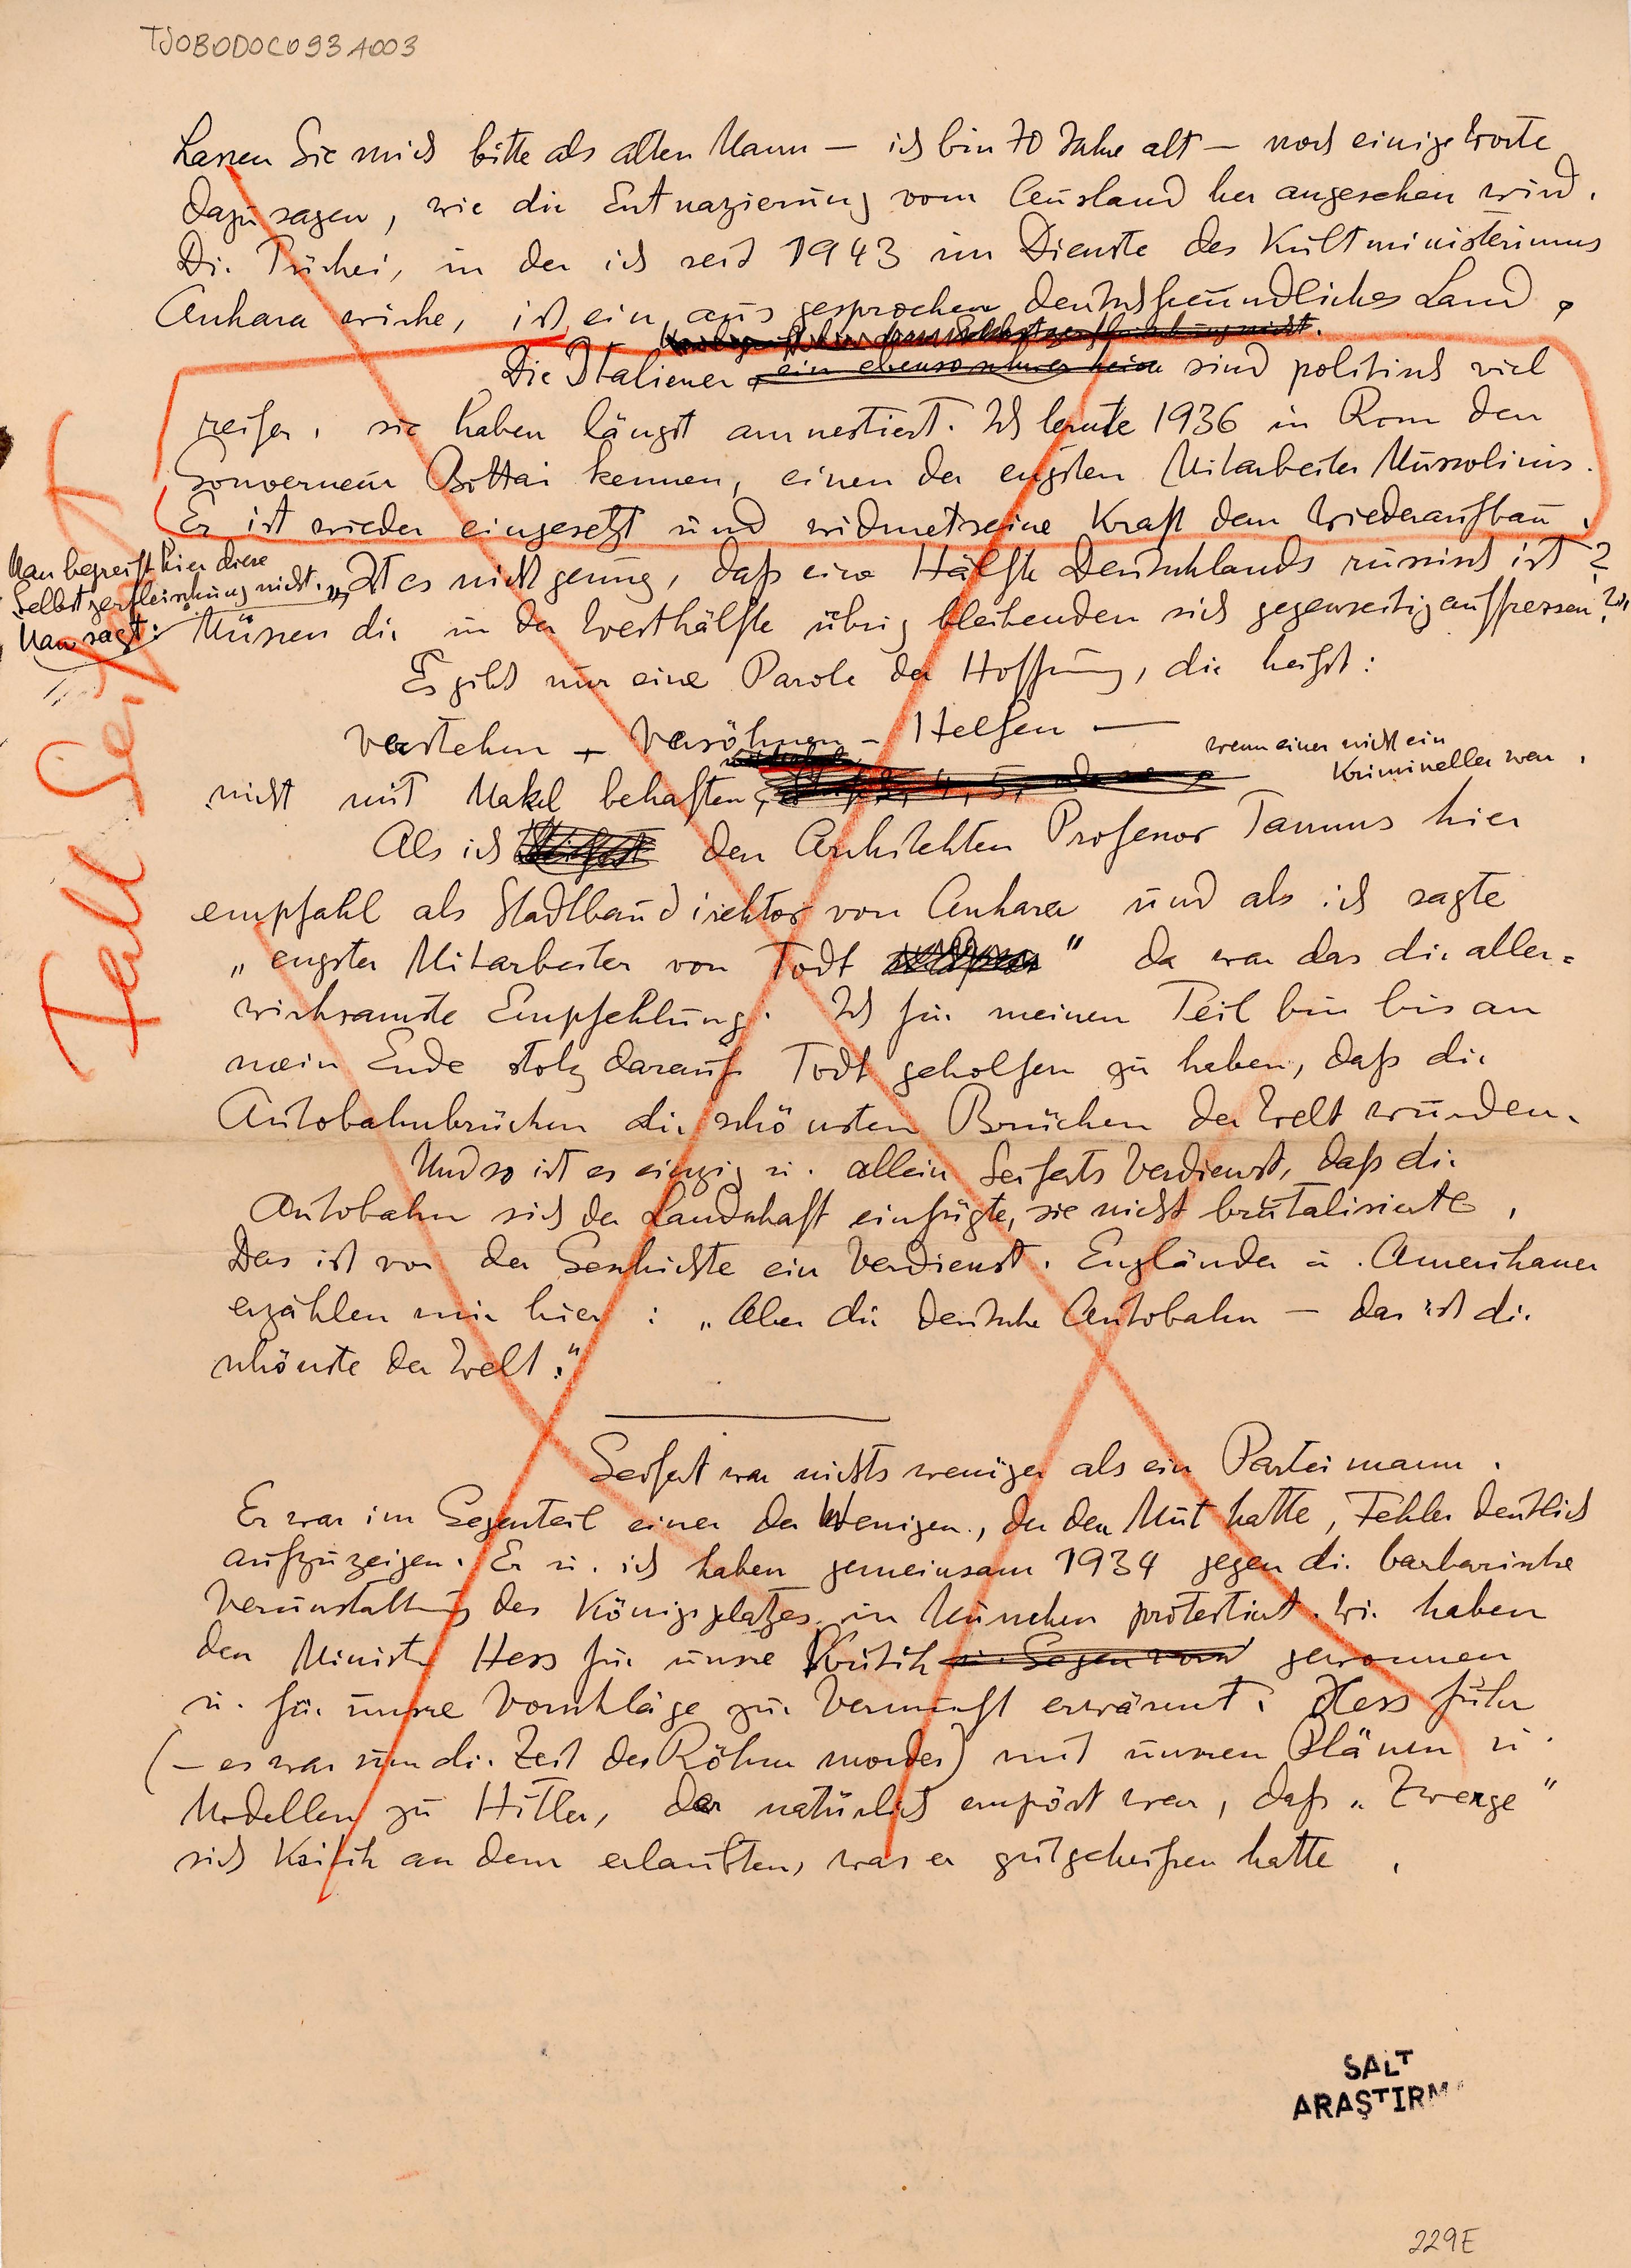 TJOBODOC093A003
Lassen Sie mich bitte als alten Mann — ich bin 70 Jahre alt — noch einige Worte
dazu sagen, wie die Entnazierung vom Ausland her angesehen wird.
Die Türkei, in der ich seit 1943 im Dienste des Kultministeriums
Ankara wirke, ist ein ausgesprochen deutschfreundliches Land.
Die Italiener sind politisch viel
reifer, sie haben längst amnestiert. Ich lernte 1936 in Rom den
Gouverneur Bottai kennen, einen der engsten Mitarbeiter Mussolinis.
Er ist wieder eingesetzt und widmet seine Kraft dem Wiederaufbau.
Man begreift hier diese
Selbstzerfleischung nicht.
Man sagt:
„Ist es nicht genug, daß eine Hälfte Deutschlands russisch ist?
Müssen die in der Westhälfte übrig bleibenden sich gegenseitig auffressen?"
Es gibt nur eine Parole der Hoffnung, die heißt:
Verstehen – Versöhnen – Helfen —
nicht mit Makel behaften, wenn einer nicht ein
Krimineller war.
Als ich den Architekten Professor Tamms hier
empfahl als Stadtbaudirektor von Ankara und als ich sagte
„engster Mitarbeiter von Todt" da war das die aller-
wirksamste Empfehlung. Ich für meinen Teil bin bis an
mein Ende stolz darauf Todt geholfen zu haben, daß die
Autobahnbrücken die schönsten Brücken der Welt wurden.
Und so ist es einzig u. allein Seiferts Verdienst, daß die
Autobahn sich der Landschaft einfügte, sie nicht brutalisierte.
Das ist vor der Geschichte ein Verdienst. Engländer u. Amerikaner
erzählen mir hier: „Aber die deutsche Autobahn — das ist die
schönste der Welt."
Seifert war nichts weniger als ein Parteimann.
Er war im Gegenteil einer der Wenigen, der den Mut hatte, Fehler deutlich
aufzuzeigen. Er u. ich haben gemeinsam 1934 gegen die barbarische
Verunstaltung des Königsplatzes in München protestiert. Wir haben
den Minister Hess für unsre Kritik gewonnen
u. für unsre Vorschläge zur Vernunft erwärmt. Hess fuhr
(– es war um die Zeit des Röhm mordes) mit unsren Plänen u.
Modellen zu Hitler, der natürlich empört war, daß „Zwerge"
sich Kritik an dem erlaubten, was er gutgeheißen hatte.
Fall Seifert
SALT
ARAŞTIRMA
229E